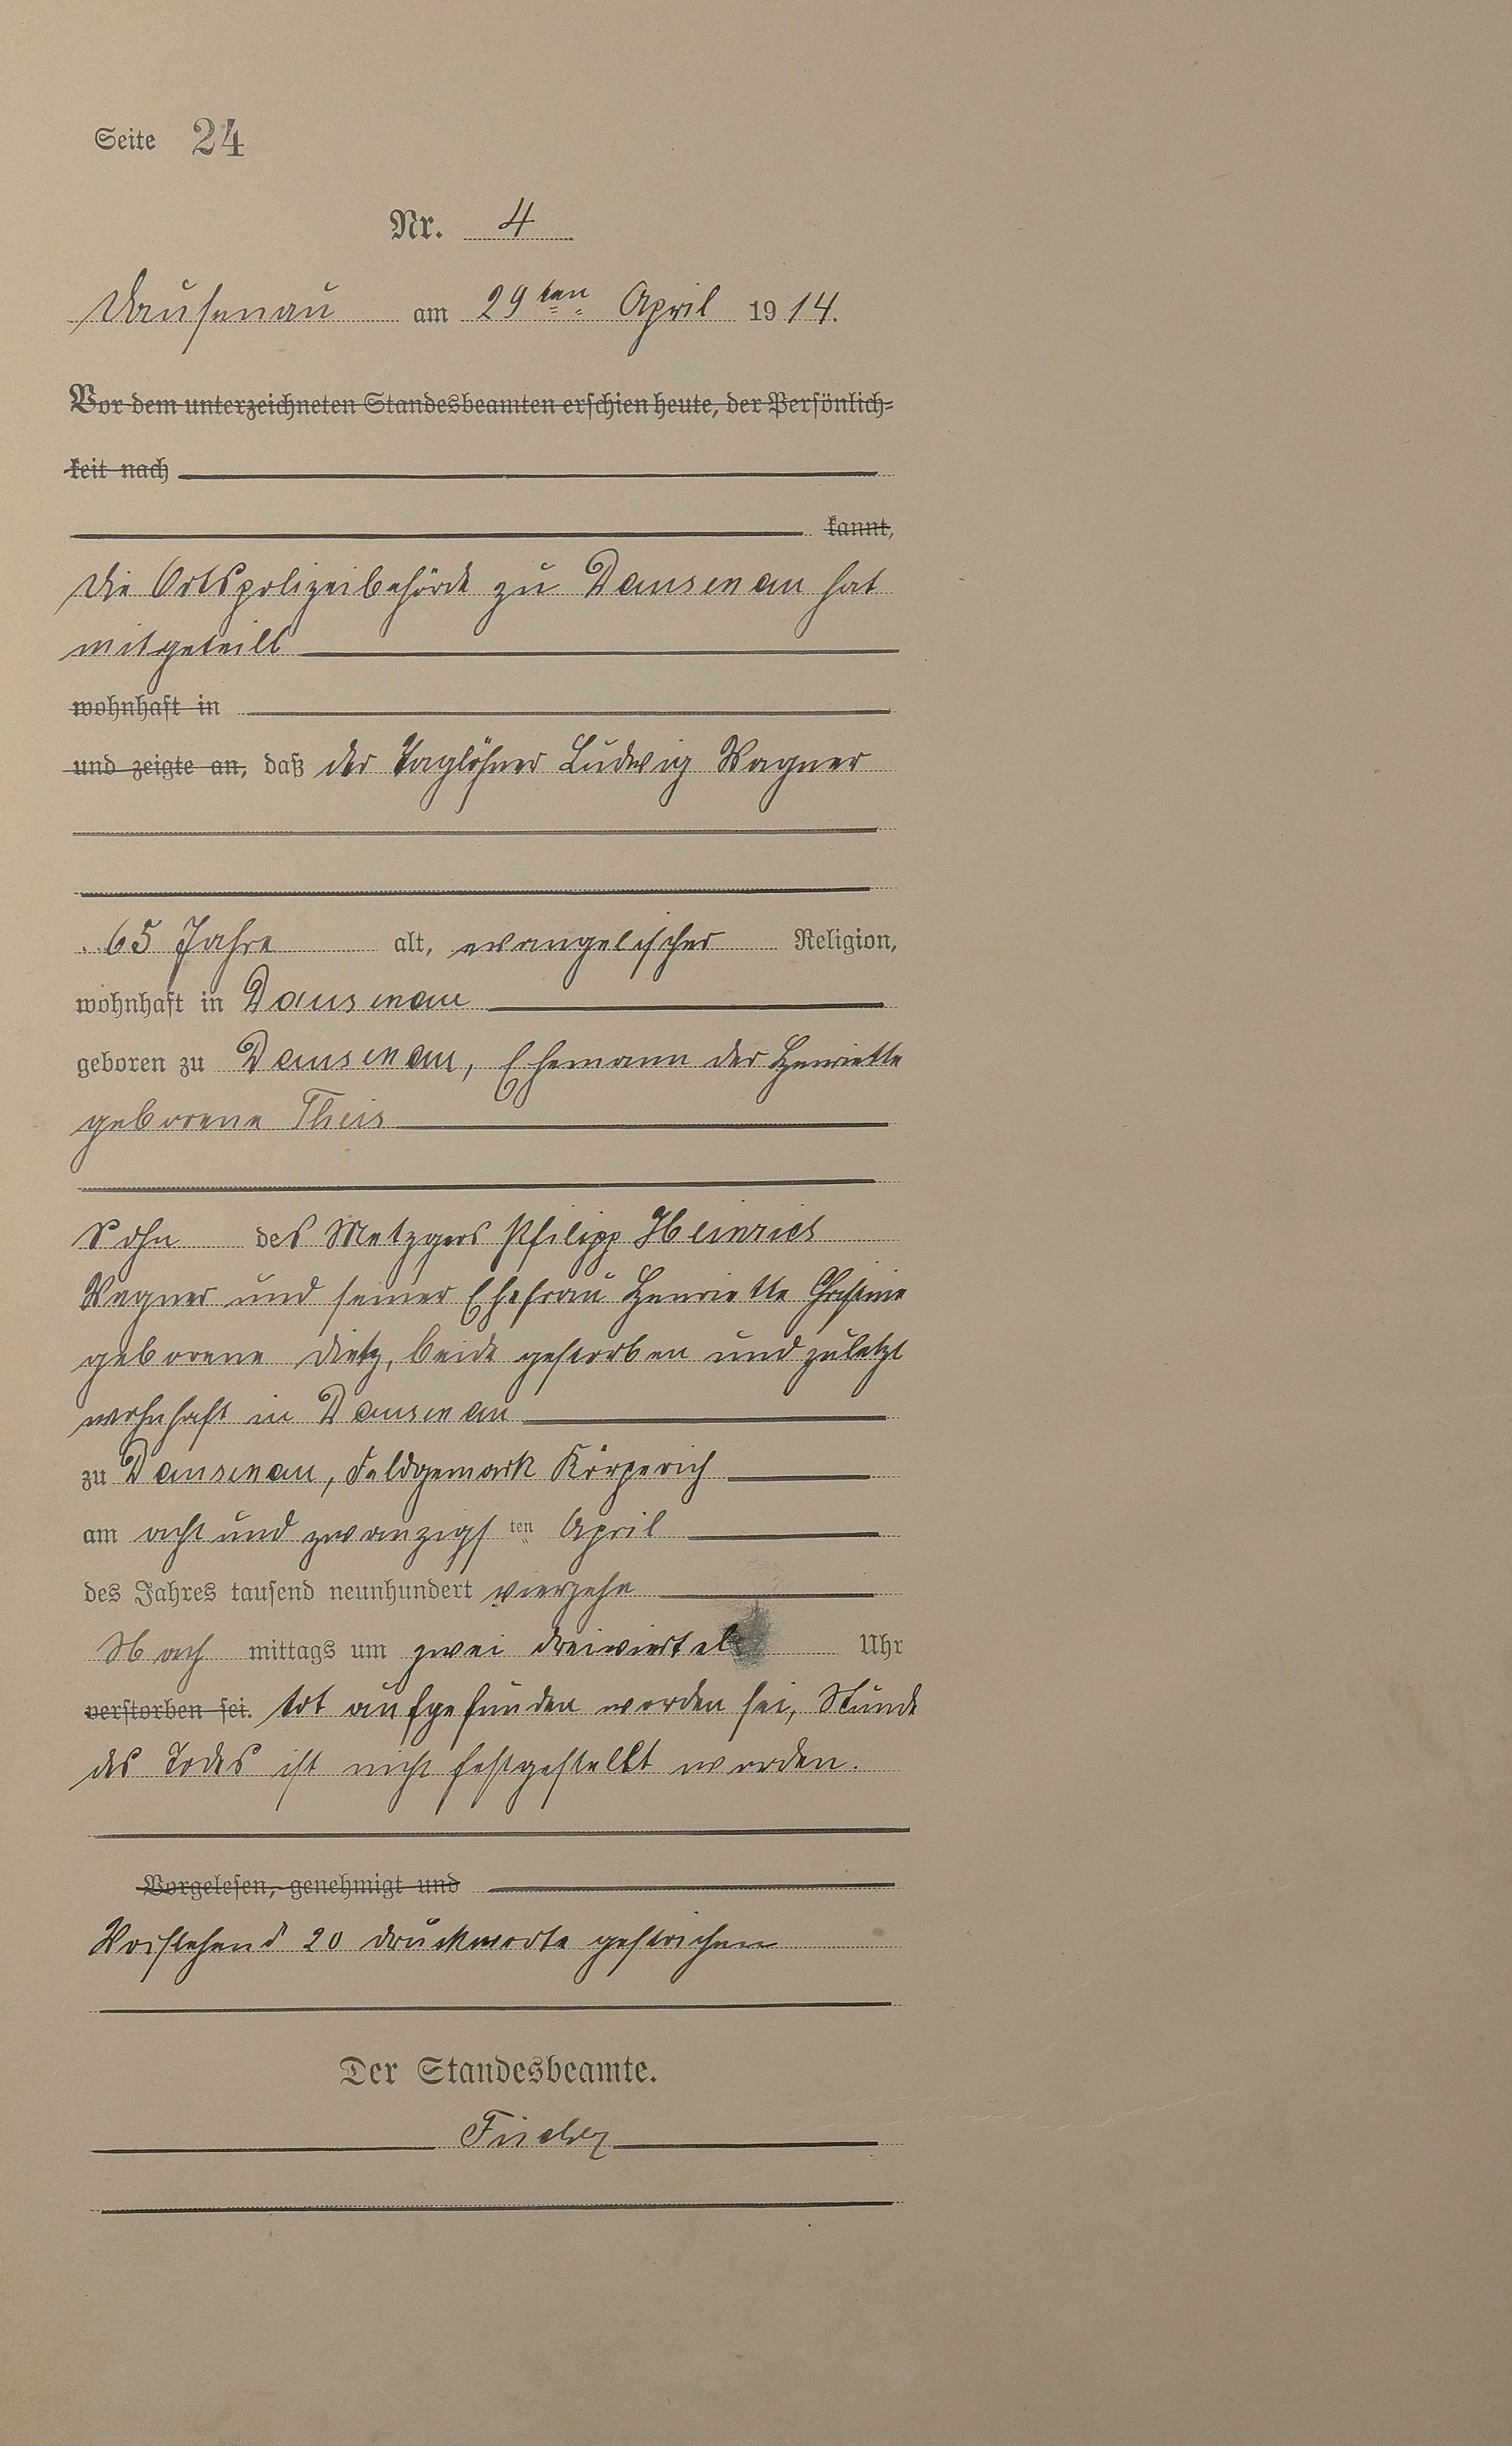 Seite 24
Nr. 4
Dausenau am 29ten April 1914.
Vor dem unterzeichneten Standesbeamten erschien heute, der Persönlich-
keit nach
kannt,
die Ortspolizeibehörde zu Dausenau hat
mitgeteilt
wohnhaft in
und zeigte an, daß der Taglöhner Ludwig Wagner
65 Jahre alt, evangelischer Religion,
wohnhaft in Dausenau
geboren zu Dausenau, Ehemann der Henriette
geborene Theis
Sohn des Metzgers Philipp Heinrich
Wagner und seiner Ehefrau Henriette Christine
geborene Dietz, beide gestorben und zuletzt
wohnhaft in Dausenau
zu Dausenau, Feldgemark
am acht und zwanzigsten April
des Jahres tausend neunhundert vierzehn
Nachmittags um zwei dreiviertel Uhr
verstorben sei. tot aufgefunden worden sei, Stunde
des Todes ist nicht festgestellt worden.
Vorgelesen, genehmigt und
Vorstehend 20 Druckworte gestrichen
Der Standesbeamte.